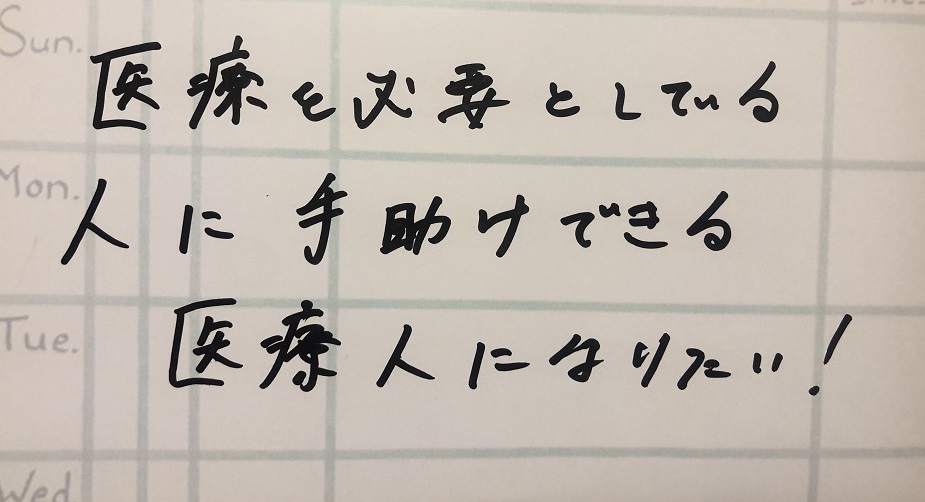 Sun.
医療を必要としている
Mon.
人に手助けできる
Tue.
医療人になりたい!
Wed